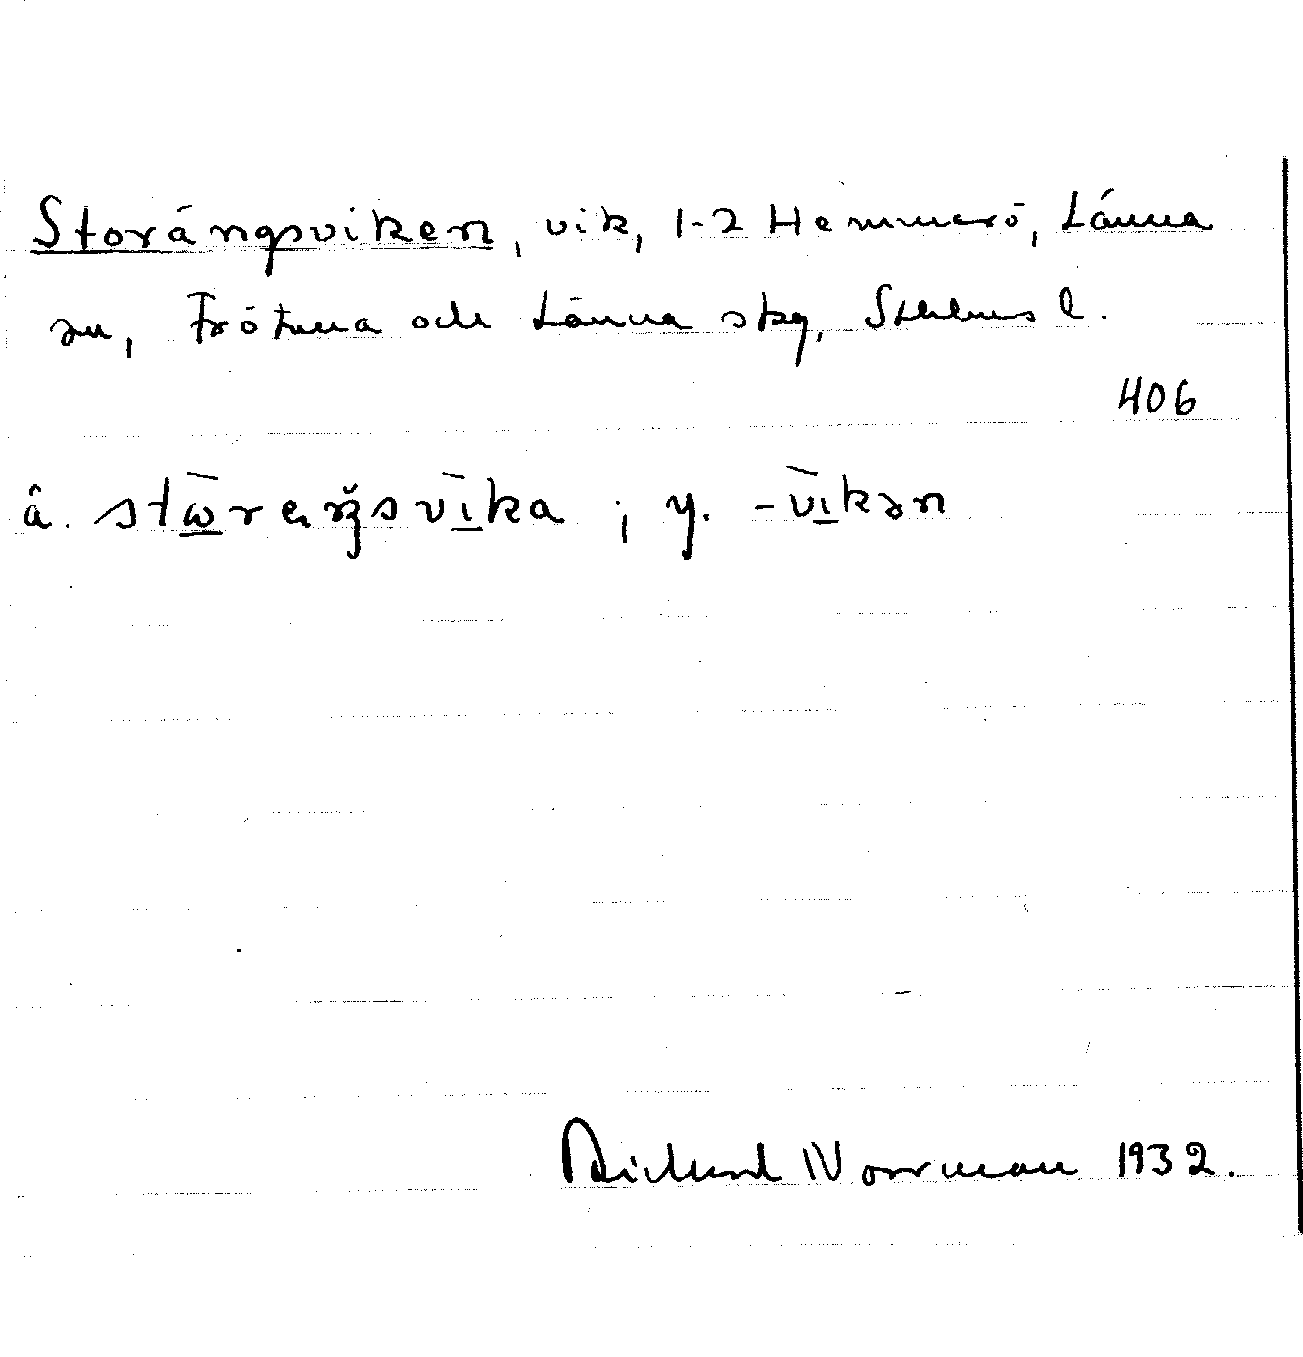 Storängsviken, vik, 1-2 Hemmarö, Länna
sn, Frötuna och Länna skg, Sthlms l.
406
ä. stωrεŋsvika ; y. -vikən
Rickard Norrman 1932.